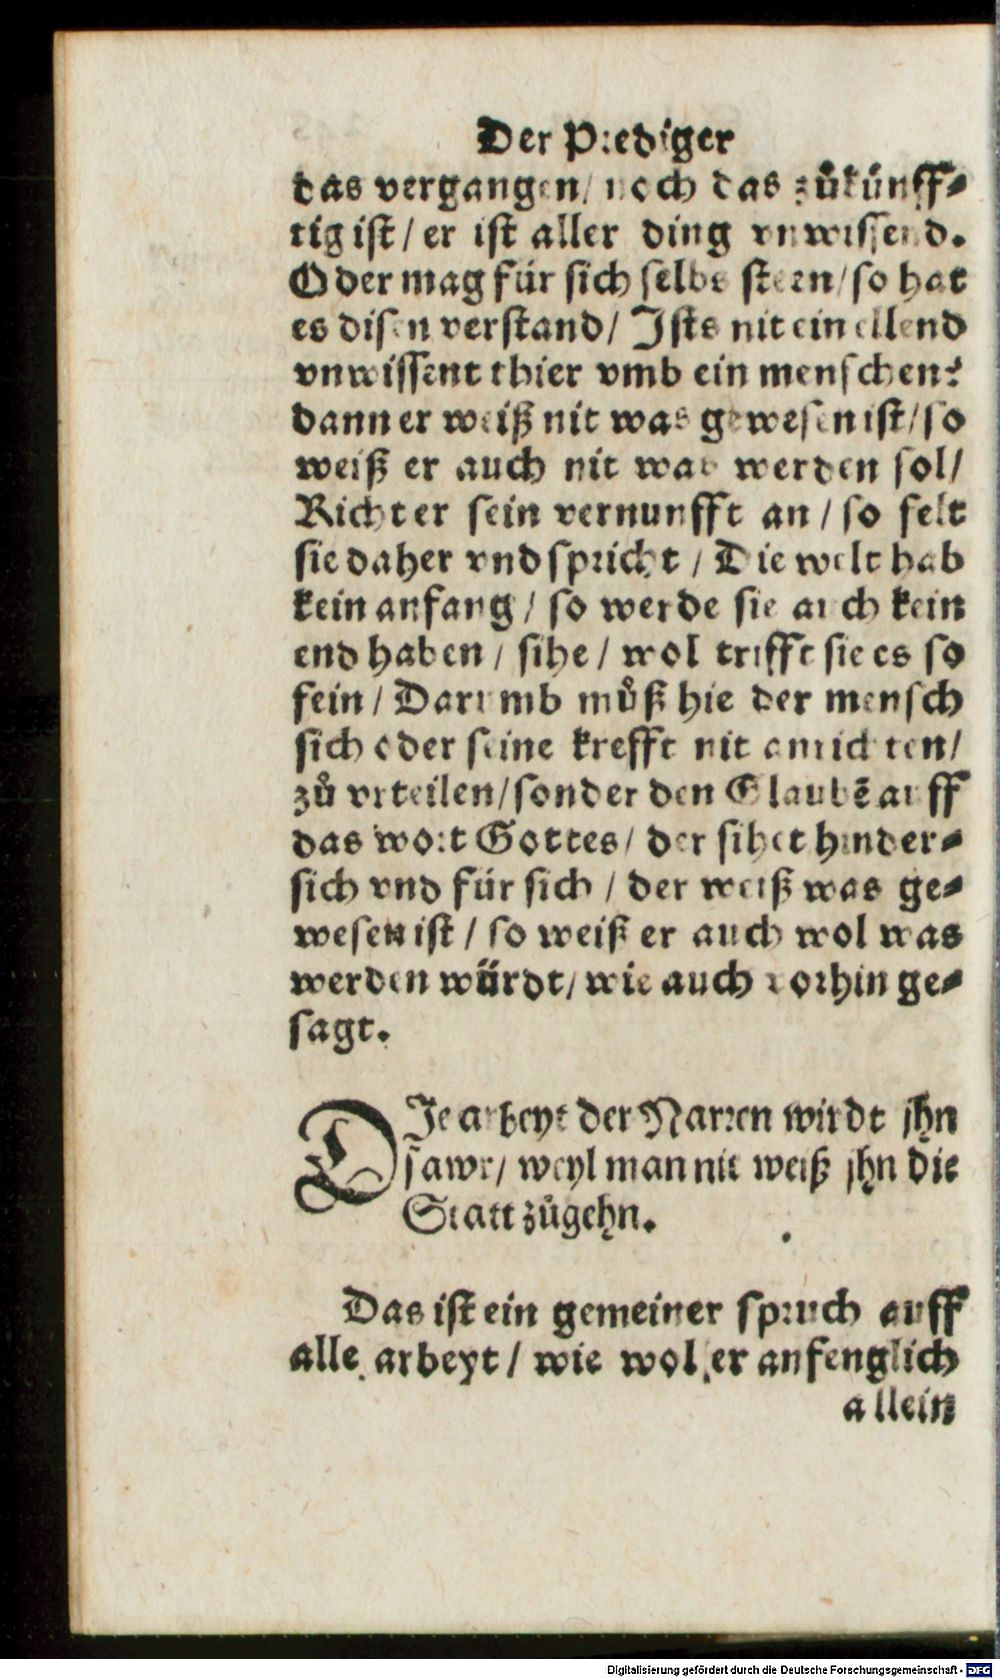 Der Prediger
das vergangen/ noch das zůkünff⸗
tig ist/ er ist aller ding vnwissend.
Oder mag für sich selbs steen/ so hat
es disen verstand/ Ists nit ein ellend
vnwissent thier vmb ein menschen?
dann er weiß nit was gewesen ist/ so
weiß er auch nit was werden sol/
Richt er sein vernunfft an/ so felt
sie daher vnd spricht/ Die welt hab
kein anfang/ so werde sie auch kein
end haben/ sihe/ wol trifft sie es so
fein/ Darumb můß hie der mensch
sich oder seine krefft nit anrichten/
zů vrteilen/ sonder den Glaubē auff
das wort Gottes/ der sihet hinder⸗
sich vnd für sich/ der weiß was ge⸗
wesen ist/ so weiß er auch wol was
werden würdt/ wie auch vorhin ge⸗
sagt.
DIe arbeyt der Narren wirdt jhn
sawr/ weyl man nit weiß jhn die
Statt zůgehn.
Das ist ein gemeiner spruch auff
alle arbeyt/ wie wol er anfenglich
allein
Digitalisierung gefördert durch die Deutsche Forschungsgemeinschaft - DFG